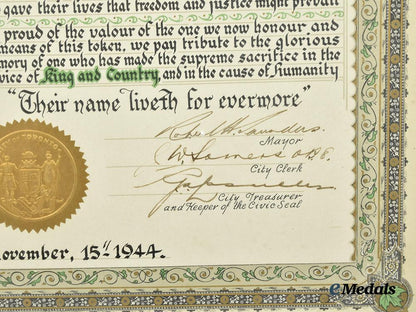 gave their lives that freedom and justice might prevail
proud of the valour of the one we now honour and
means of this token, we pay tribute to the glorious
mory of one who has made the supreme sacrifice in the
vice of King and Country, and in the cause of Humanity
"Their name liveth for evermore"
Robert H. Saunders.
Mayor
City Clerk
City Treasurer
and Keeper of the Civic Seal
TORONTO
ovember, 15th 1944.
eMedals